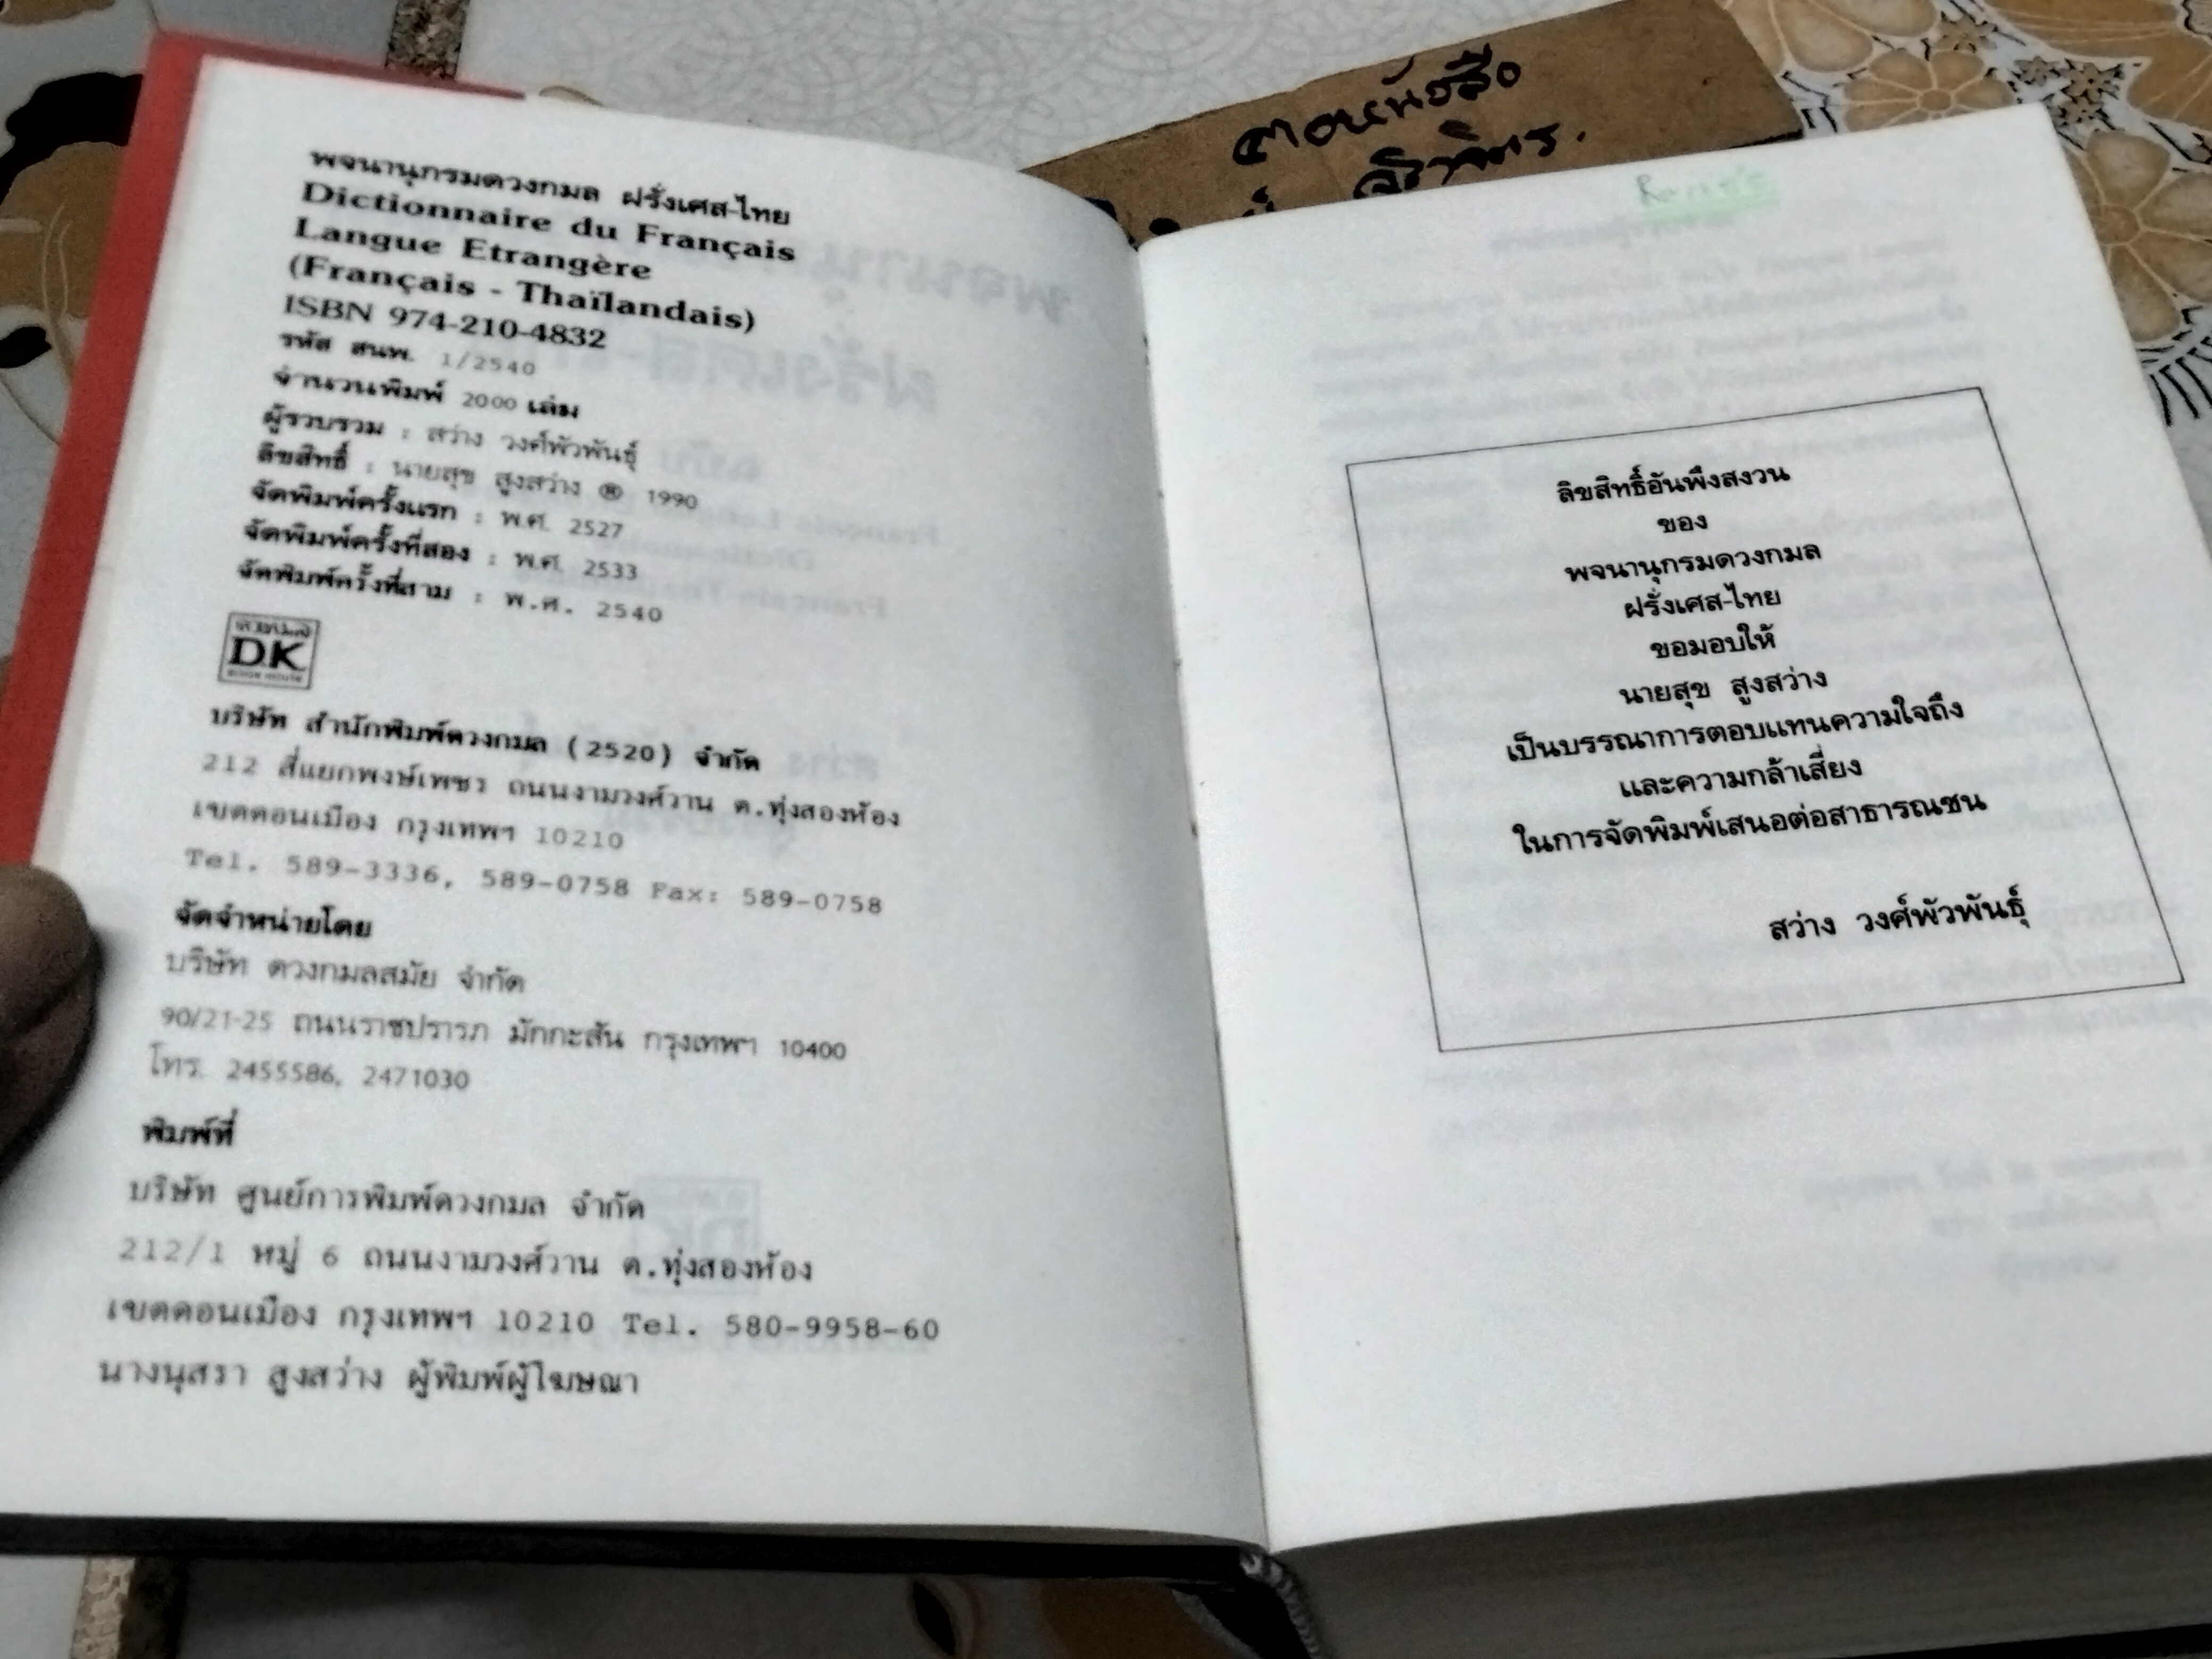 พจนานุกรมดวงกมล ฝรั่งเศส-ไทย
Dictionnaire du Français
Langue Etrangère
(Français - Thaïlandais)
ISBN 974-210-4832
รหัส สนพ. 1/2540
จำนวนพิมพ์ 2000 เล่ม
ผู้รวบรวม : สว่าง วงศ์พัวพันธุ์
ลิขสิทธิ์ : นายสุข สูงสว่าง ® 1990
จัดพิมพ์ครั้งแรก : พ.ศ. 2527
จัดพิมพ์ครั้งที่สอง : พ.ศ. 2533
จัดพิมพ์ครั้งที่สาม : พ.ศ. 2540
ดวงกมล
DK
BOOK HOUSE
บริษัท สำนักพิมพ์ดวงกมล (2520) จำกัด
212 สี่แยกพงษ์เพชร ถนนงามวงศ์วาน ต.ทุ่งสองห้อง
เขตดอนเมือง กรุงเทพฯ 10210
Tel. 589-3336, 589-0758 Fax: 589-0758
จัดจำหน่ายโดย
บริษัท ดวงกมลสมัย จำกัด
90/21-25 ถนนราชปรารภ มักกะสัน กรุงเทพฯ 10400
โทร. 2455586, 2471030
พิมพ์ที่
บริษัท ศูนย์การพิมพ์ดวงกมล จำกัด
212/1 หมู่ 6 ถนนงามวงศ์วาน ต.ทุ่งสองห้อง
เขตดอนเมือง กรุงเทพฯ 10210 Tel. 580-9958-60
นางนุสรา สูงสว่าง ผู้พิมพ์ผู้โฆษณา
ลิขสิทธิ์อันพึงสงวน
ของ
พจนานุกรมดวงกมล
ฝรั่งเศส-ไทย
ขอมอบให้
นายสุข สูงสว่าง
เป็นบรรณาการตอบแทนความใจถึง
และความกล้าเสี่ยง
ในการจัดพิมพ์เสนอต่อสาธารณชน
สว่าง วงศ์พัวพันธุ์